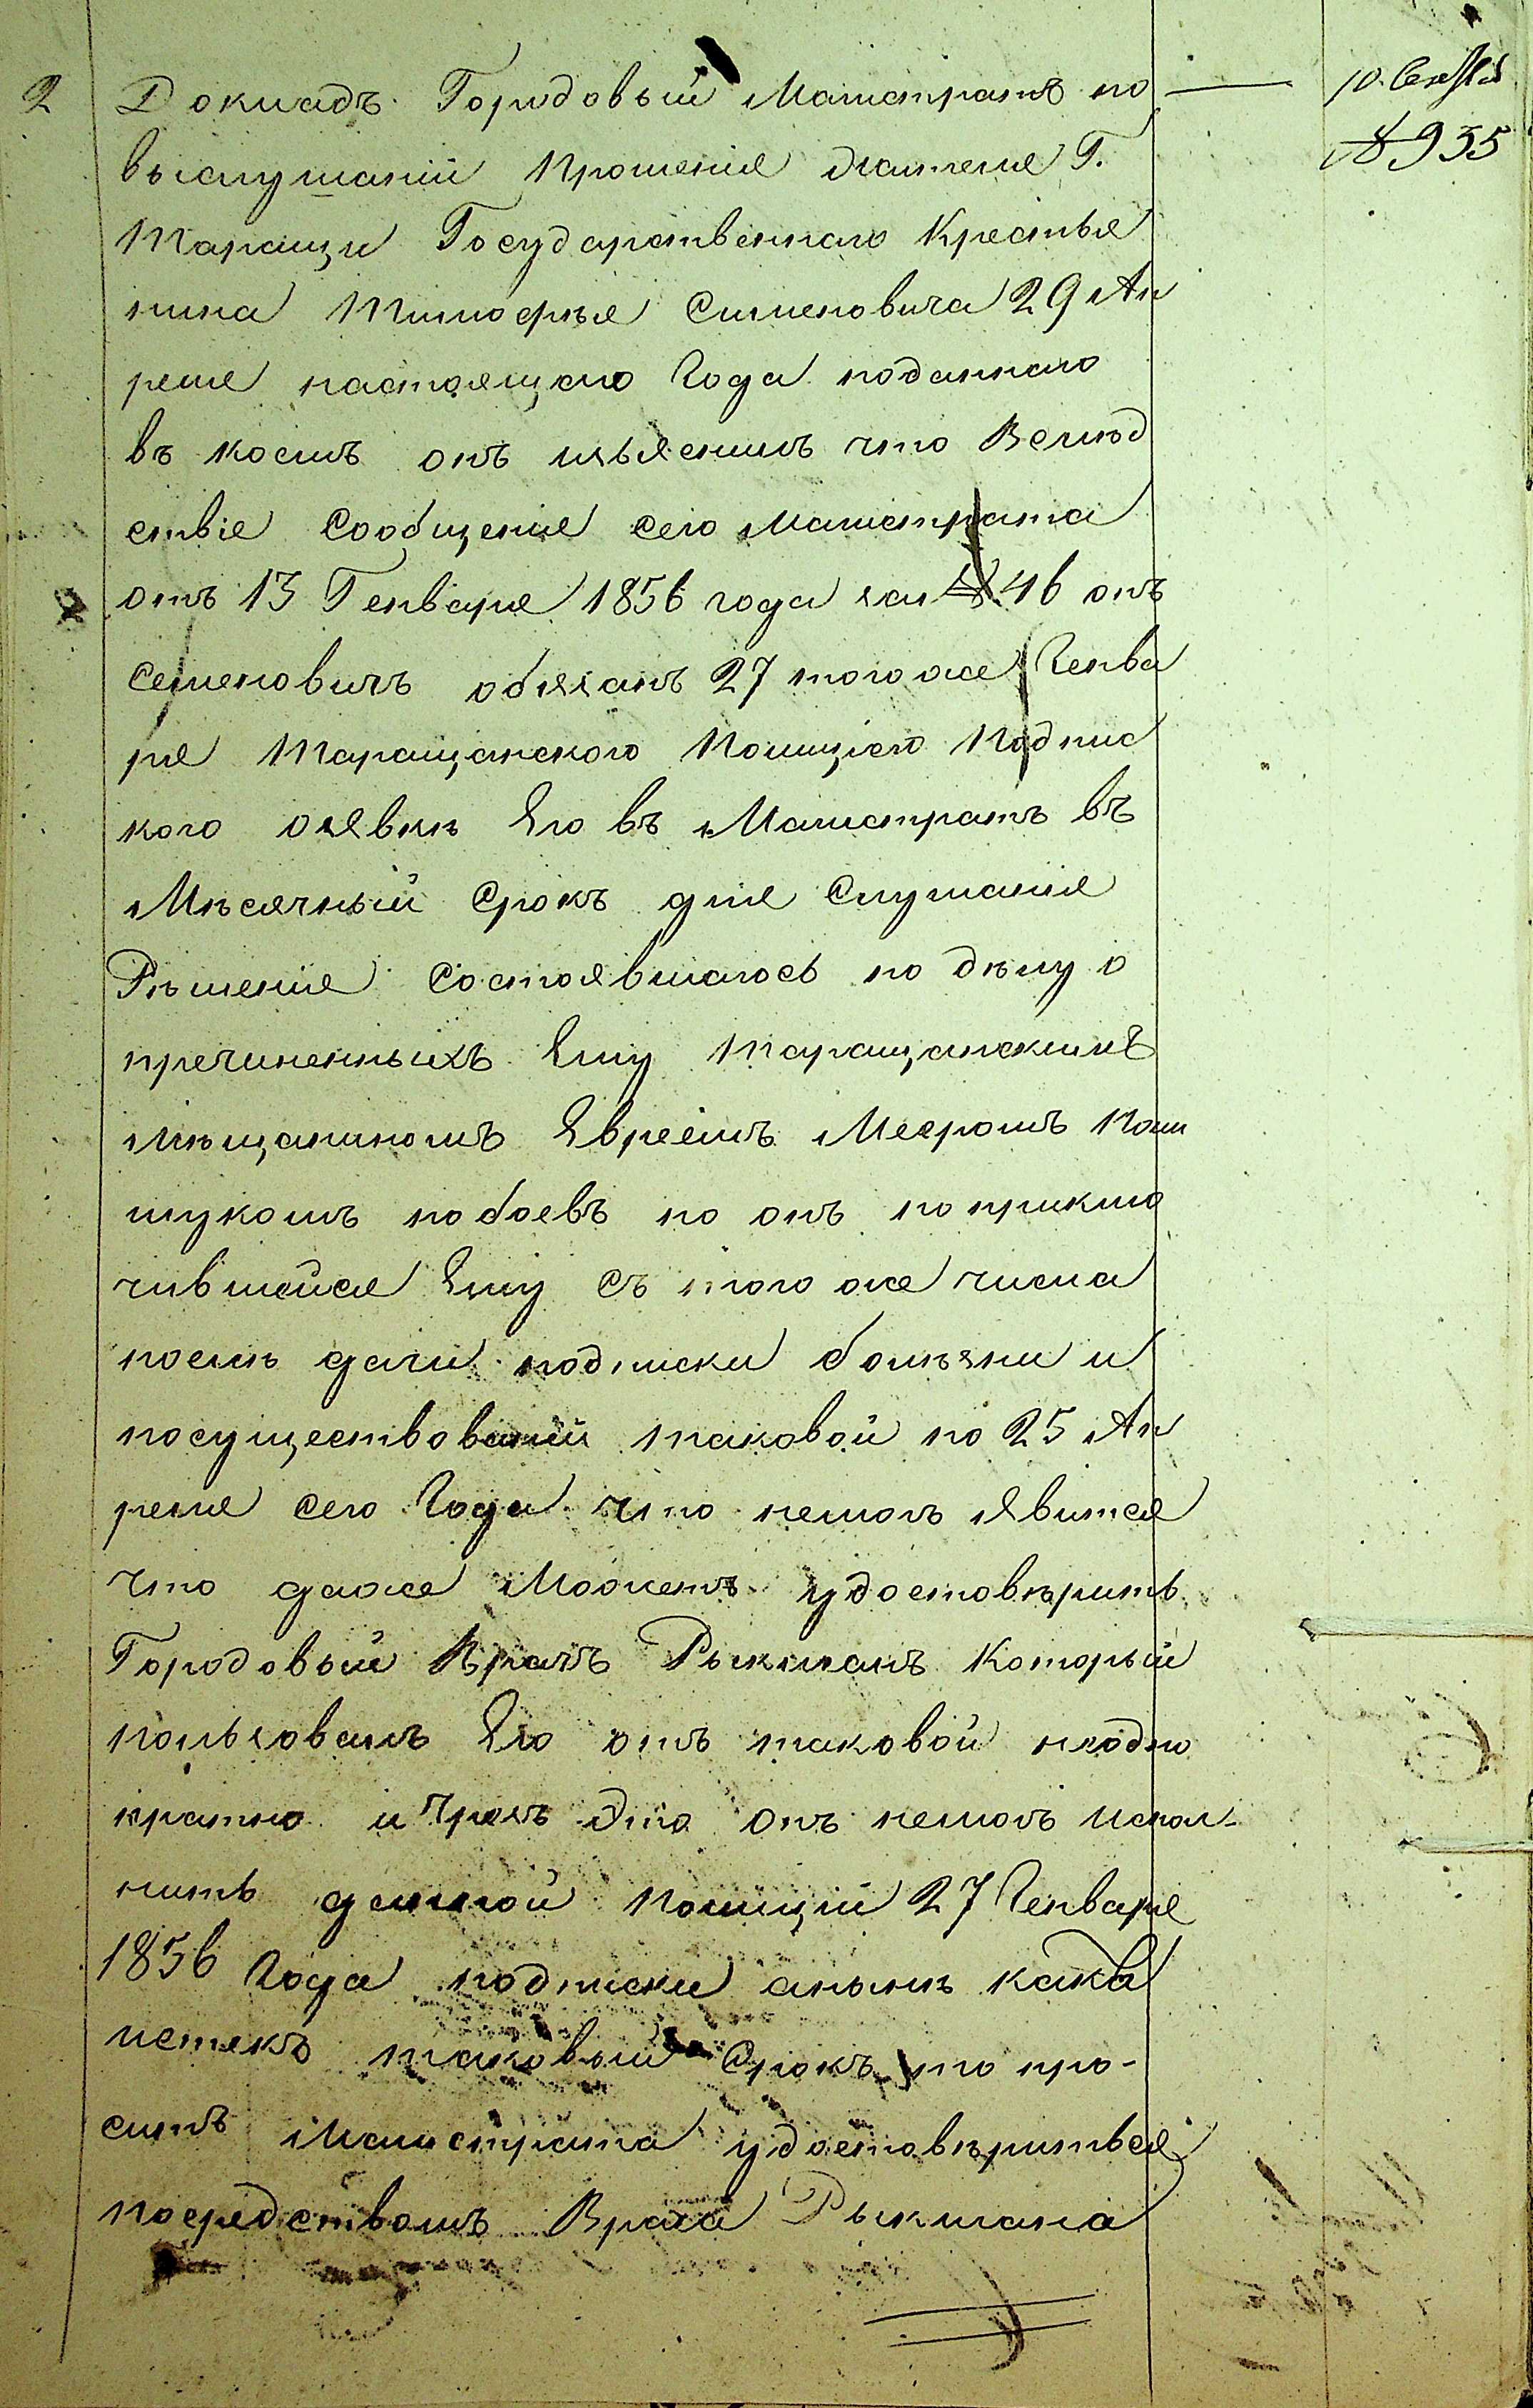 2 Докладъ. Городовый Магистратъ по — 10. Сентяб
№ 935
выслушаніи Прошенія жителя Г.
Таращи Государственнаго Крестья
нина Тимофѣя Сименовича 29 Ап
реля настоящего Года поданнаго
въ коемъ онъ изъяснилъ что Вслѣд
ствіе Сообщенія Сего Магистрата
отъ 13 Генваря 1856 года за № 46 онъ
Семеновичъ обязанъ 27 того же Генва
ря Таращанского Полиціею Подпис
кого оявкѣ Его въ Магистратъ въ
Мѣсячный Срокъ для Слушанія
Рѣшенія Состоявшагось по дѣлу о
причиненныхъ Ему Таращанскимъ
мѣщаниномъ Евреемъ Мееромъ Поли
щукомъ побоевъ но онъ по приклю
чившейся Ему съ того же числа
послѣ дачи подписки болѣзни и
посуществованіи таковой по 25 Ап
реля сего Года что немогъ Явится
что даже Можетъ удостовѣрить
Городовый Врачъ Рыкманъ Который
пользовалъ Его отъ таковой неодно
кратно и Чрезъ Это онъ немогъ испол-
нить данной Полиціи 27 Генваря
1856 Года подписки анынѣ какъ
истекъ таковый Срокъ, то про-
ситъ Магистрата удостовѣриться
посредствомъ Врача Рыкмана